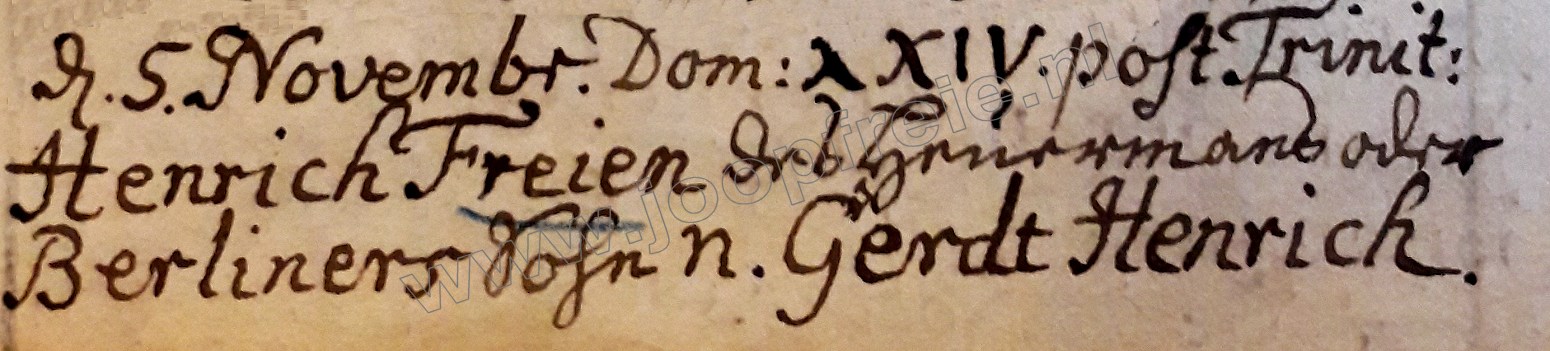 d. 5. Novembr. Dom: XXIV. post Trinit:
Henrich Freien des Heuermans oder
Berliners Sohn n. Gerdt Henrich.
www.joopfreie.nl